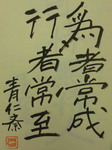 為者常成
行者常至
青仁奈